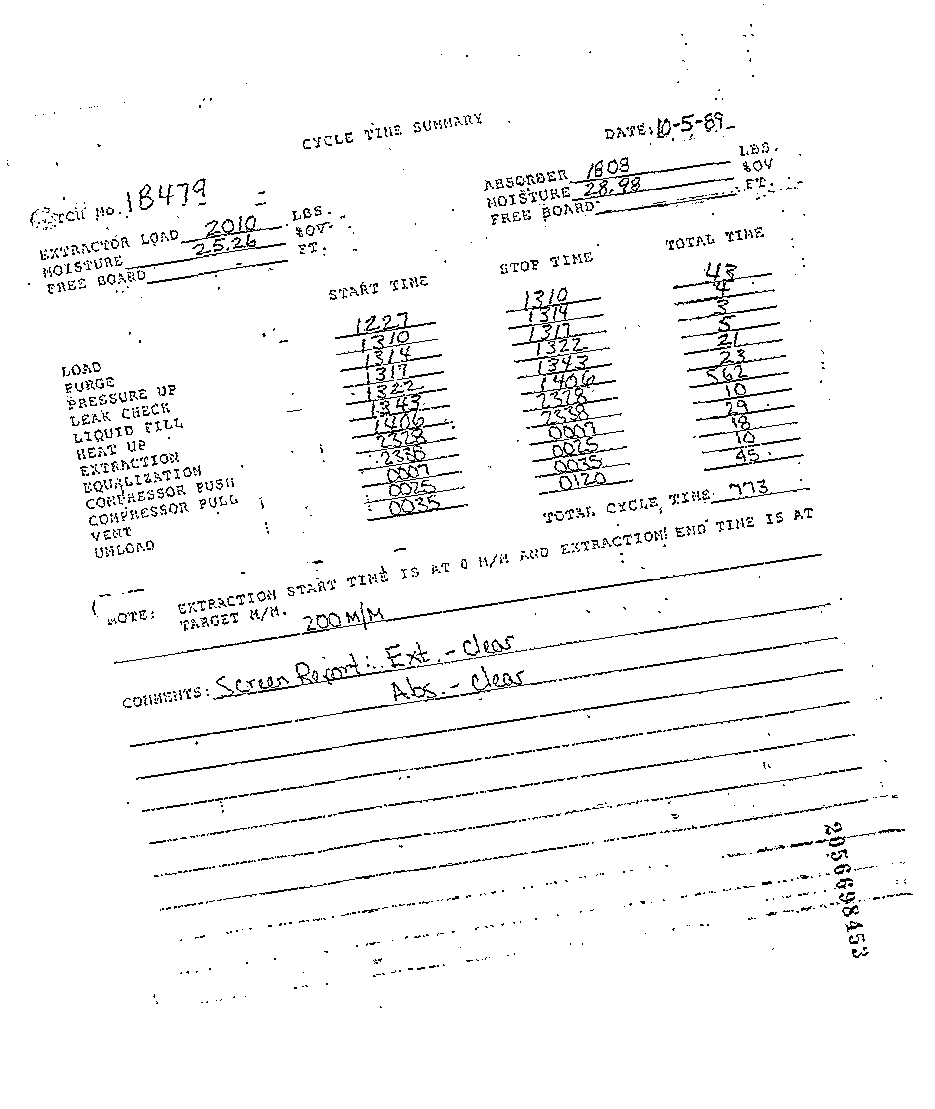 CYCLE TIME SUMMARY
DATE: 10-5-89
BATCH No. 18479
ABSORBER 1808 LBS.
MOISTURE 28.98 %OV
FREE BOARD FT.
EXTRACTOR LOAD 2010 LBS.
MOISTURE 25.26 %OV
FREE BOARD FT.
START TIME STOP TIME TOTAL TIME
LOAD 1227 1310 43
PURGE 1310 1314 4
PRESSURE UP 1314 1317 3
LEAK CHECK 1317 1322 5
LIQUID FILL 1322 1343 21
HEAT UP 1343 1406 23
EXTRACTION 1406 2328 562
EQUALIZATION 2328 2338 10
COMPRESSOR PUSH 2338 0007 29
COMPRESSOR PULL 0007 0025 18
VENT 0025 0035 10
UNLOAD 0035 0120 45
TOTAL CYCLE TIME 773
NOTE: EXTRACTION START TIME IS AT 0 M/M AND EXTRACTION END TIME IS AT
TARGET M/M. 200 M/M
COMMENTS: Screen Report: Ext. - Clear
Abs. - Clear
2056698453